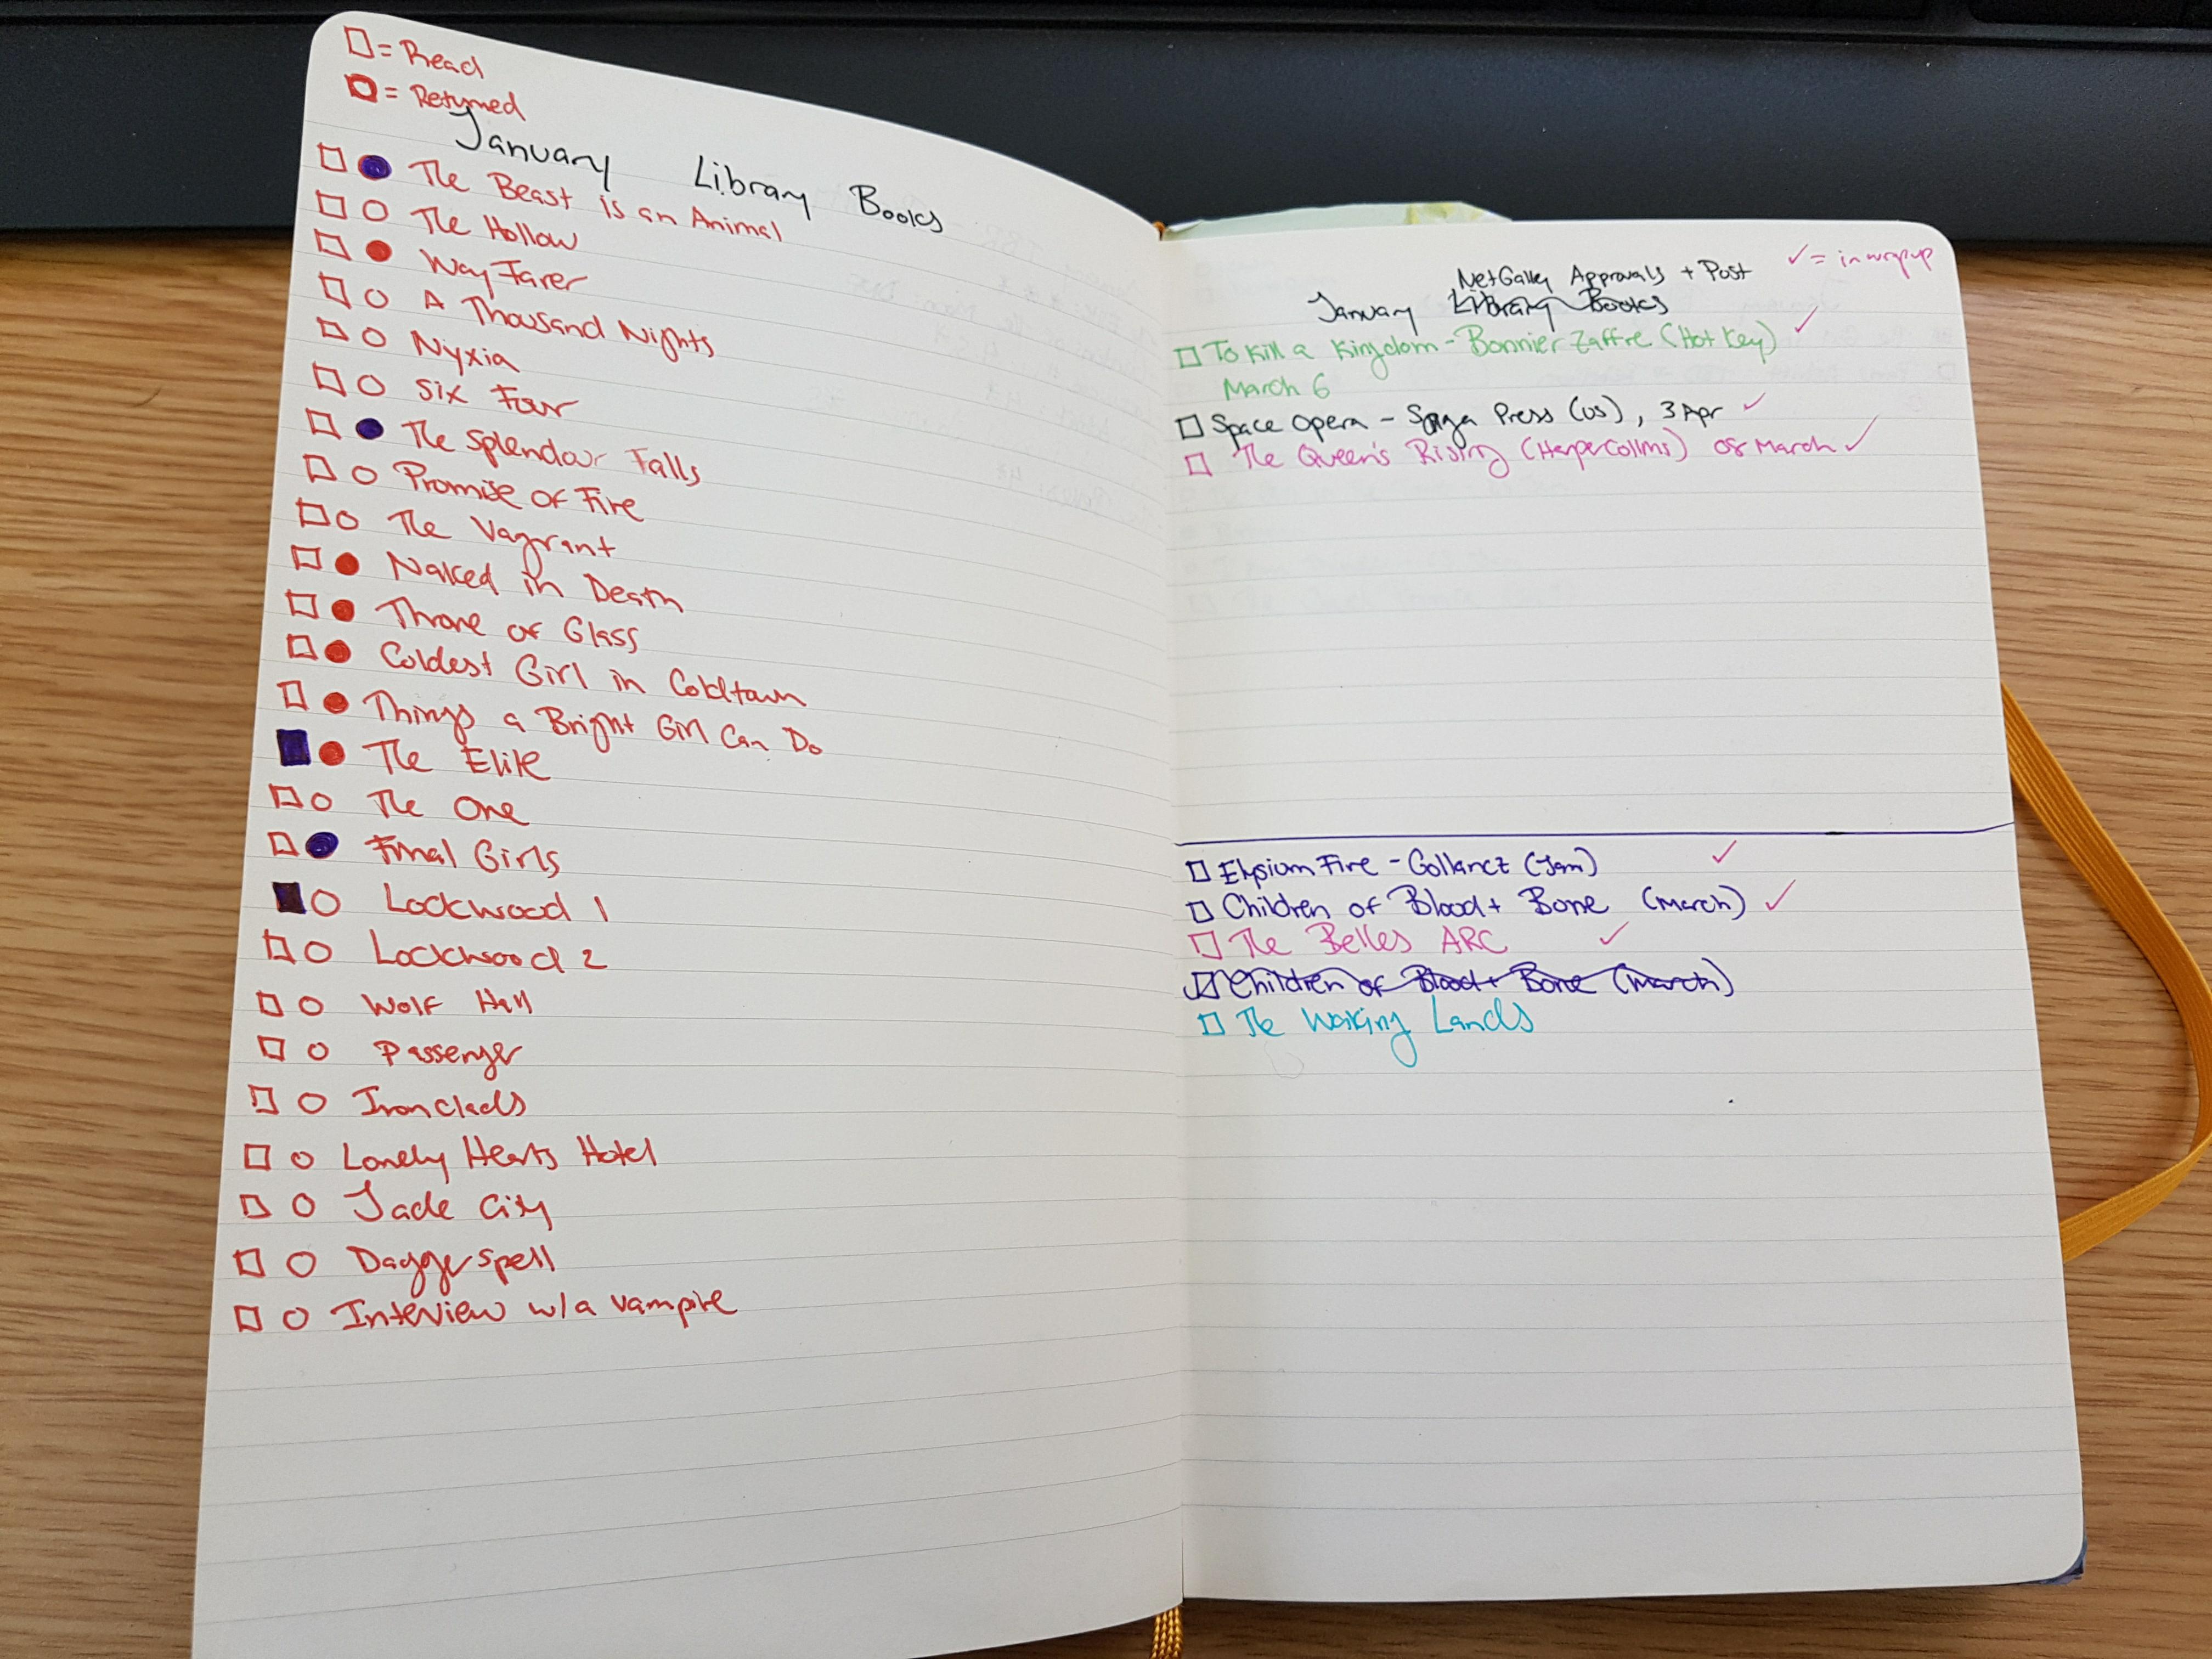 □ = Read
○ = Returned
January Library Books
□ ● The Beast is an Animal
□ ○ The Hollow
□ ● Wayfarer
□ ○ A Thousand Nights
□ ○ Nyxia
□ ○ Six Four
□ ● The Splendour Falls
□ ○ Promise of Fire
□ ○ The Vagrant
□ ● Naked in Death
□ ● Throne of Glass
□ ● Coldest Girl in Coldtown
□ ● Things a Bright Girl Can Do
■ ● The Elite
□ ○ The One
□ ● Final Girls
■ ○ Lockwood 1
□ ○ Lockwood 2
□ ○ Wolf Hall
□ ○ Passenger
□ ○ Ironclads
□ ○ Lonely Hearts Hotel
□ ○ Jade City
□ ○ Daggerspell
□ ○ Interview w/a vampire
✓ = in wrapup
NetGalley Approvals + Post
January Library Books
□ To Kill a Kingdom - Bonnier Zaffre (Hot Key) ✓
March 6
□ Space Opera - Saga Press (US), 3 Apr ✓
□ The Queen's Rising (HarperCollins) 08 March ✓
□ Elysium Fire - Gollancz (Jan) ✓
□ Children of Blood + Bone (March) ✓
□ The Belles ARC ✓
□ Children of Blood + Bone (March)
□ The Waking Lands